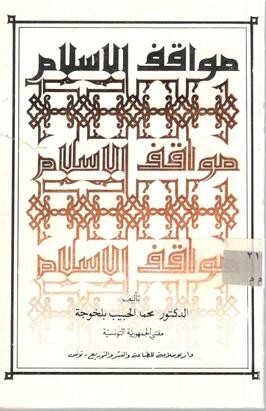 مواقف الإسلام
مواقف الإسلام
مواقف الإسلام
تأليف
الدكتور محمد الحبيب بلخوجة
مفتي الجمهورية التونسية
دار بوسلامة للطباعة والنشر والتوزيع - تونس
٢١